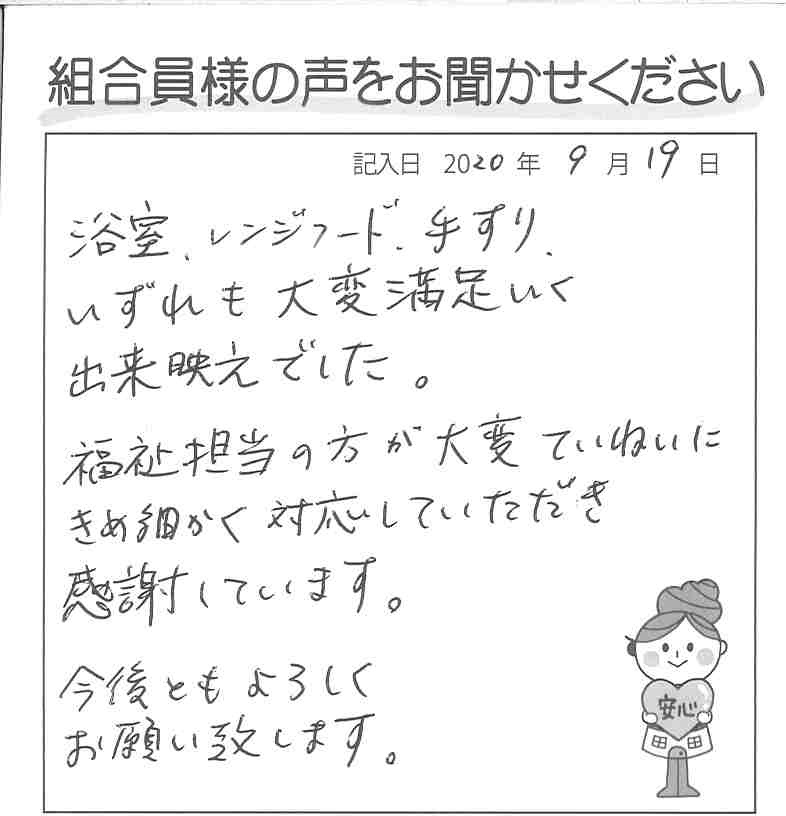 組合員様の声をお聞かせください
記入日 2020 年 9 月 19 日
浴室、レンジフード、手すり、
いずれも大変満足いく
出来映えでした。
福祉担当の方が大変ていねいに
きめ細かく対応していただき
感謝しています。
今後ともよろしく
お願い致します。
安心